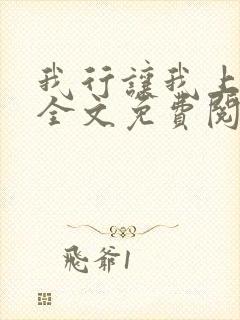 我行讓我上
全文免費閱
飛爺1